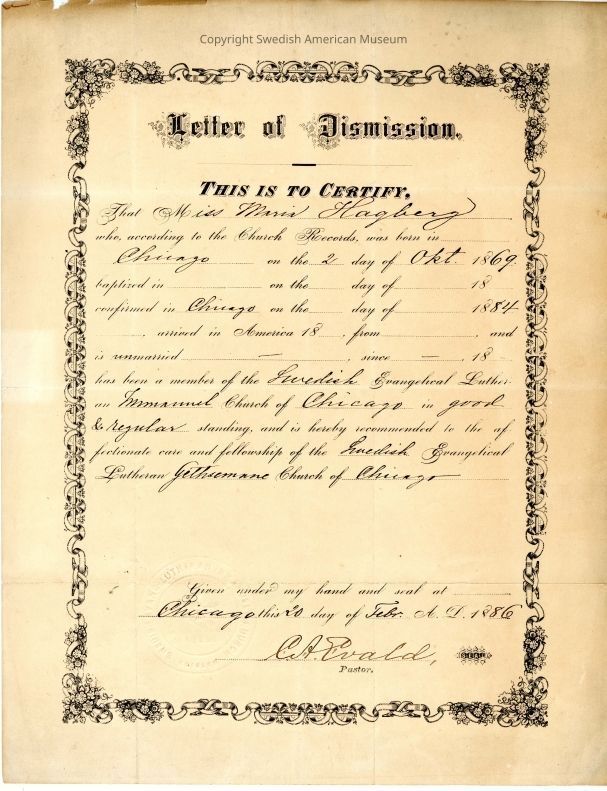 Copyright Swedish American Museum
Letter of Dismission.
THIS IS TO CERTIFY,
That Miss Maria Hagberg
who, according to the Church Records, was born in
Chicago on the 2 day of Okt. 1869.
baptized in on the day of 18
confirmed in Chicago on the day of 1884
, arrived in America 18 , from , and
is unmarried — , since — , 18
has been a member of the Swedish Evangelical Luther-
an Immanuel Church of Chicago in good
& regular standing, and is hereby recommended to the af
fectionate care and fellowship of the Swedish Evangelical
Lutheran Gethsemane Church of Chicago
Given under my hand and seal at
Chicago this 20 day of Febr. A. D. 1886
C.A. Evald,
SEAL
Pastor.